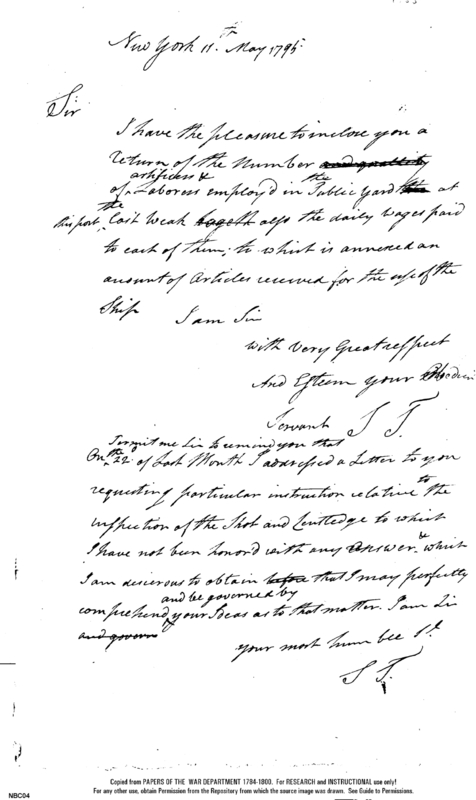 New York 11th May 1795
Sir
I have the pleasure to inclose you a
return of the Number and quallity
artificers &
of Laborers employ'd in the Public Yard at
the
this port last Weak also the daily wages paid
to each of them; to which is annexed an
amount of Articles received for the use of the
Ship
I am Sir
with Very Great respect
And Esteem your Obedient
Servant ST.
Permit me Sir to remind you that
On the 22d of Last Month I addressed a Letter to you
requesting particular instruction relative to the
inspection of the Shot and Centledge to which
I have not been honor'd with any answer, & which
I am desirous to obtain before that I may perfectly
and be governed by
comprehend your Ideas as to that matter. I am Sir
and govern
your most humbee St
ST.
Copied from PAPERS OF THE WAR DEPARTMENT 1784-1800. For RESEARCH and INSTRUCTIONAL use only!
NBC04
For any other use, obtain Permission from the Repository from which the source image was drawn. See Guide to Permissions.